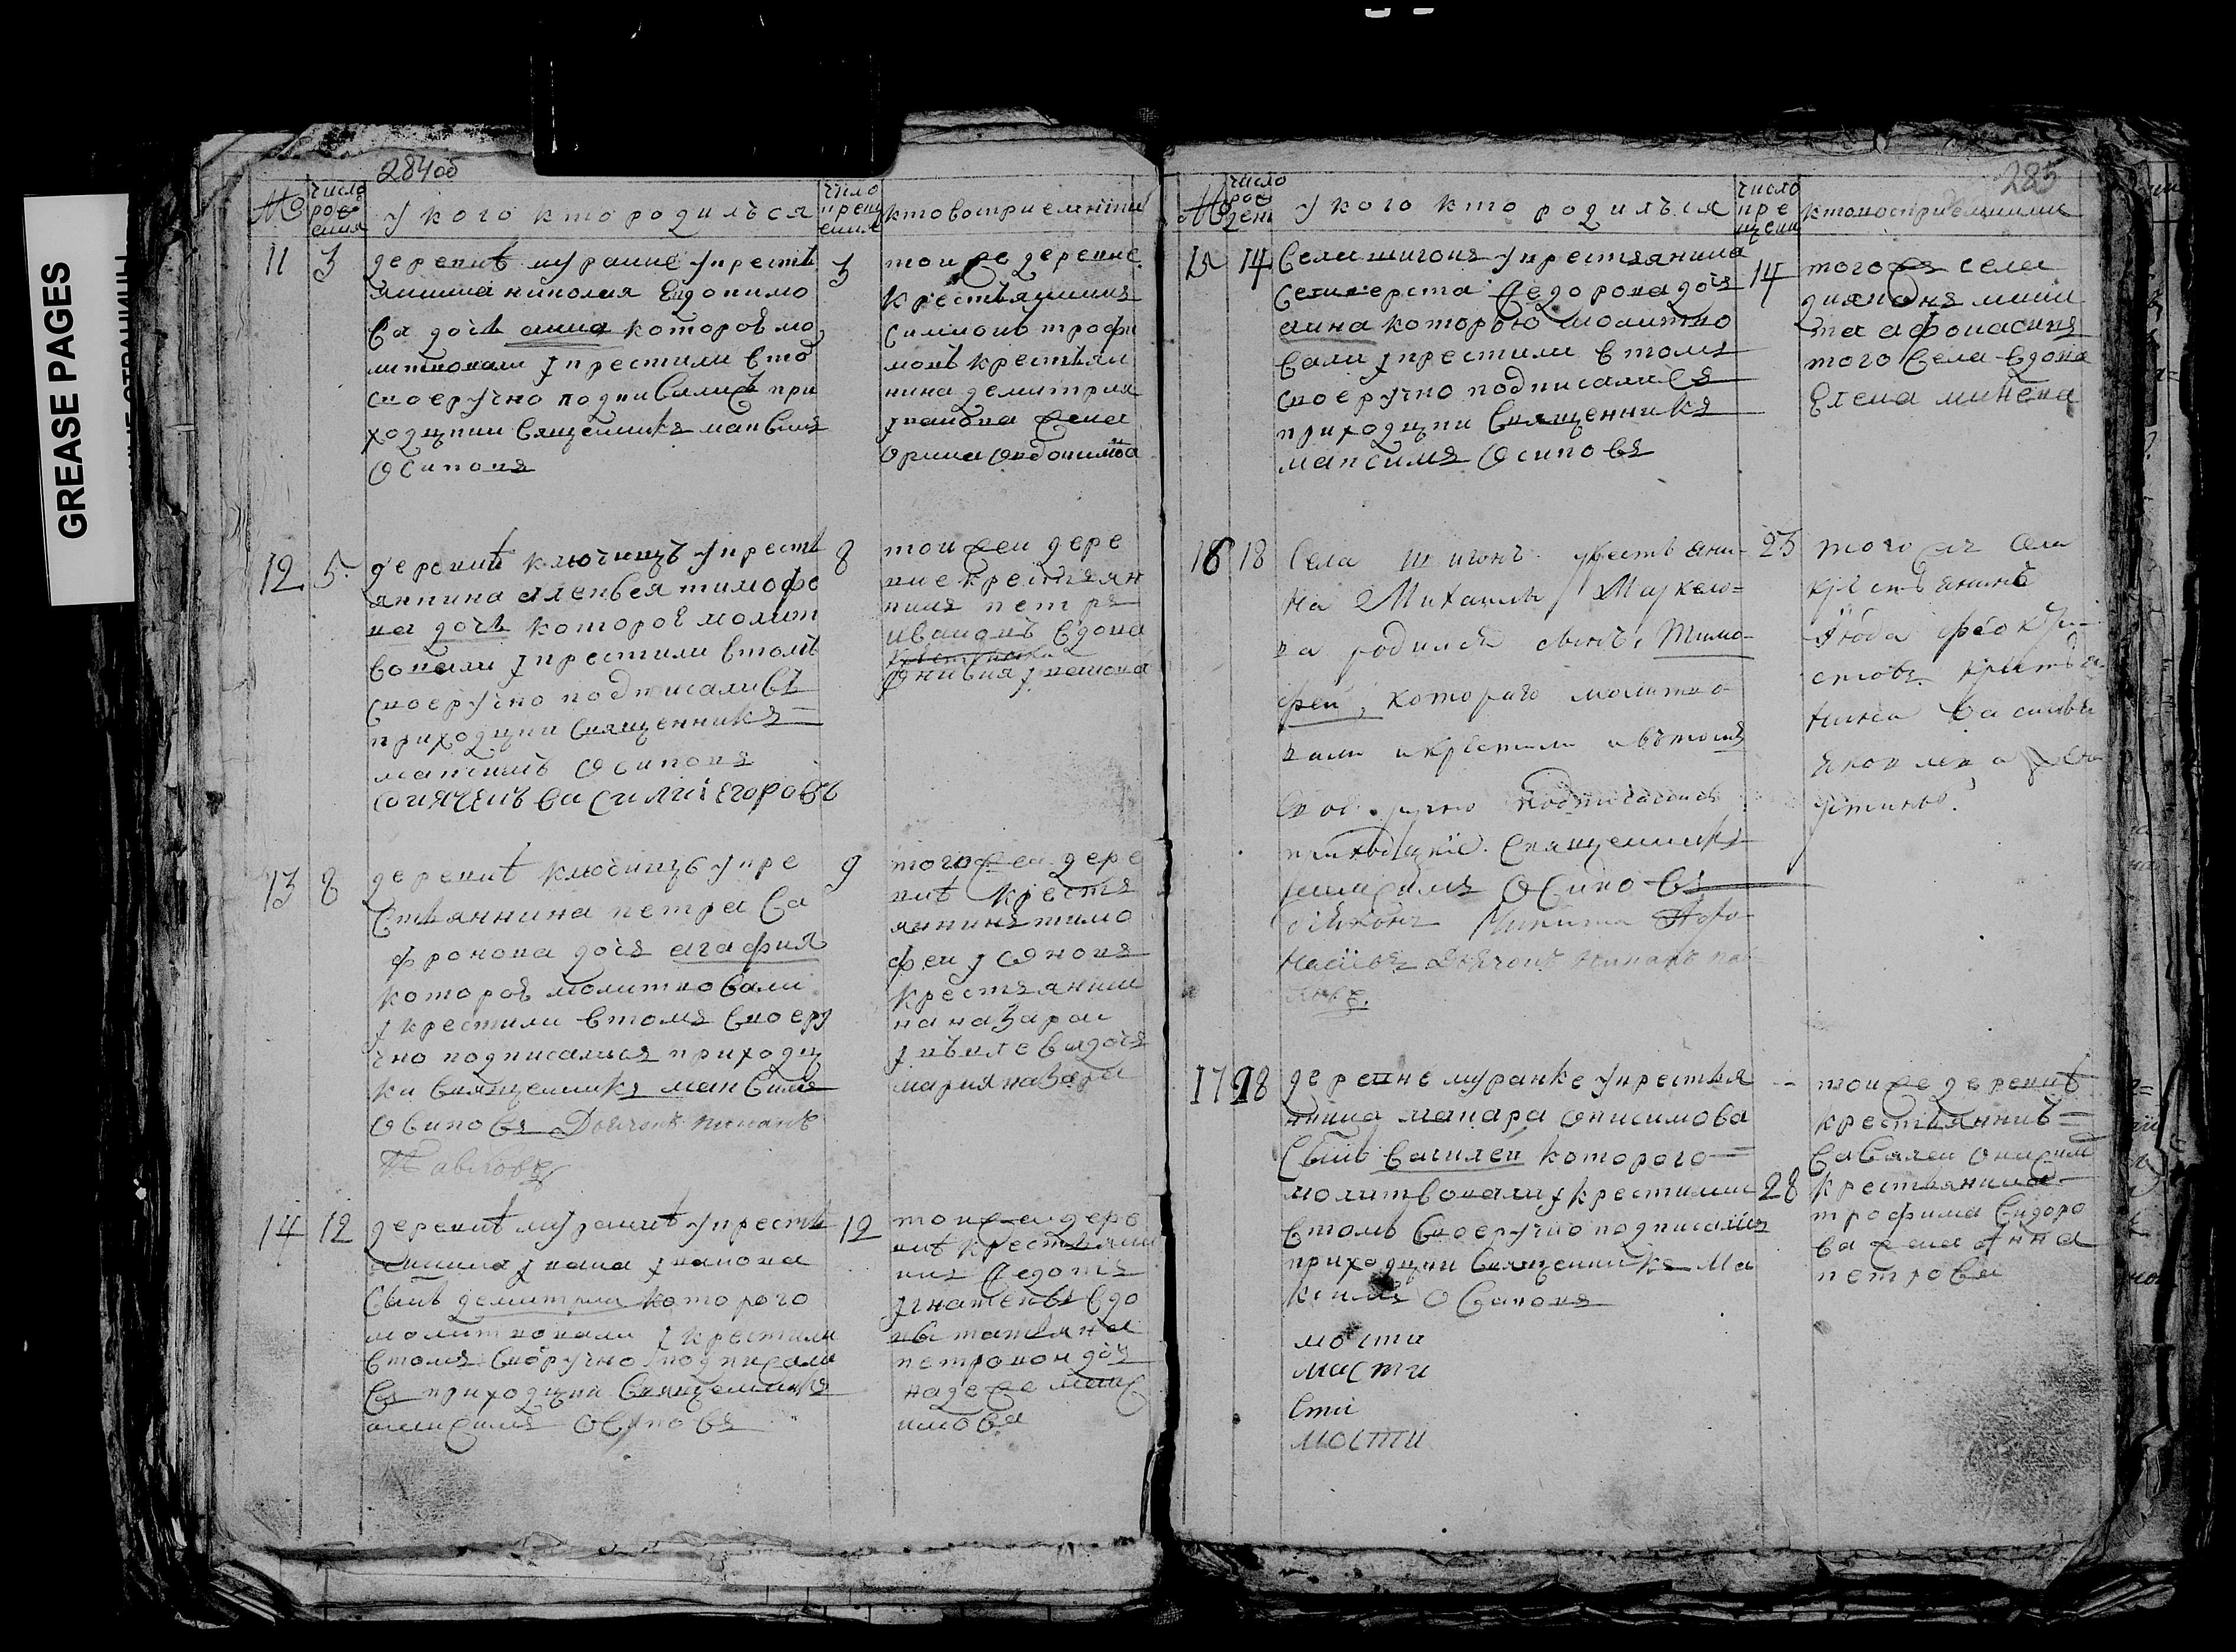 GREASE PAGES
284об
№
число
рож
ения
у кого кто родилъся
число
крещ
ения
кто восприемники
11
3
деревнѣ муранке укресть
яниина николая Евдокимо
ва дочь анна которой мо
литвовали укрестили втом
своеручно подписалися при
ходцкии священникъ максимъ
Осиповъ
3
тои же деревне
крестьянинъ
симионъ трофи
мовъ крестьян
нина демитрия
иванова жена
орина овдокимова
12
5
деревнѣ ключищъ укресть
яннина алексея тимофе
ва дочь которой молит
вовали укрестили втомъ
своеручно подписалися
приходцкии священникъ
максимъ Осиповъ
Василии Егоровъ
8
тои жеи дере
вне крестьян
нинъ петръ
ивановъ вдова
иванова
13
8
деревнѣ ключищъ укре
стьяннина петра са
фронова дочь агафия
которой молитвовали
укрестили втомъ своеру
чно подписалися приходц
ки священникъ максимъ
Осиповъ Дьячокъ
Павловъ
9
того жеи дере
внѣ крестья
яннинъ тимо
феи
крестьянни
на назара
дочь
мария назара
14
12
деревнѣ муранкѣ укресть
яннина ивана иванова
сынъ демитрии которого
молитвовали укрестили
втомъ своручно подписали
ся приходцкии священникъ
максимъ Осиповъ
12
тои жеи дере
внѣ крестьяни
нинъ федотъ
игнатевъ вдо
вы татьяна
петровои дочь
надежа макс
имова
285
№
число
рож
дени
у кого кто родилъся
число
кре
щени
кто восприемники
15
14
Села шигонъ укрестьянина
федорова дочь
анна которою молитво
вали укрестили втомъ
своеручно подписалися
приходцкии священникъ
максимъ Осиповъ
14
того жъ села
диаконъ ники
та афонасивъ
того села вдова
Елена
16
18
Села Шигонъ укрестьяни-
на Михаилы Маркело-
ва родился сынъ, Тимо-
фей, котораго молитво-
вали икрестили ивътомъ
Свое ручно подписались
приходцкие. Священникъ
максимъ Осиповъ
диаконъ Никита Афо-
насиевъ Дьячокъ
23
того жъ села
крестьянинъ
феокти-
стовъ. крестья
нина василья
яковлева жена
устинья.
17
18
деревне муранке укрестья
ннина макара онисимова
сынъ василей которого
молитвовали укрестили
втомъ своеручно подписался
приходцкии священникъ ма
ксимъ Осиповъ
мости
масти
сти
мости
28
тои же деревнѣ
крестьяннинъ
Савелеи онисим
крестьянина
трофима Сидоро
ва жена Анна
петрова